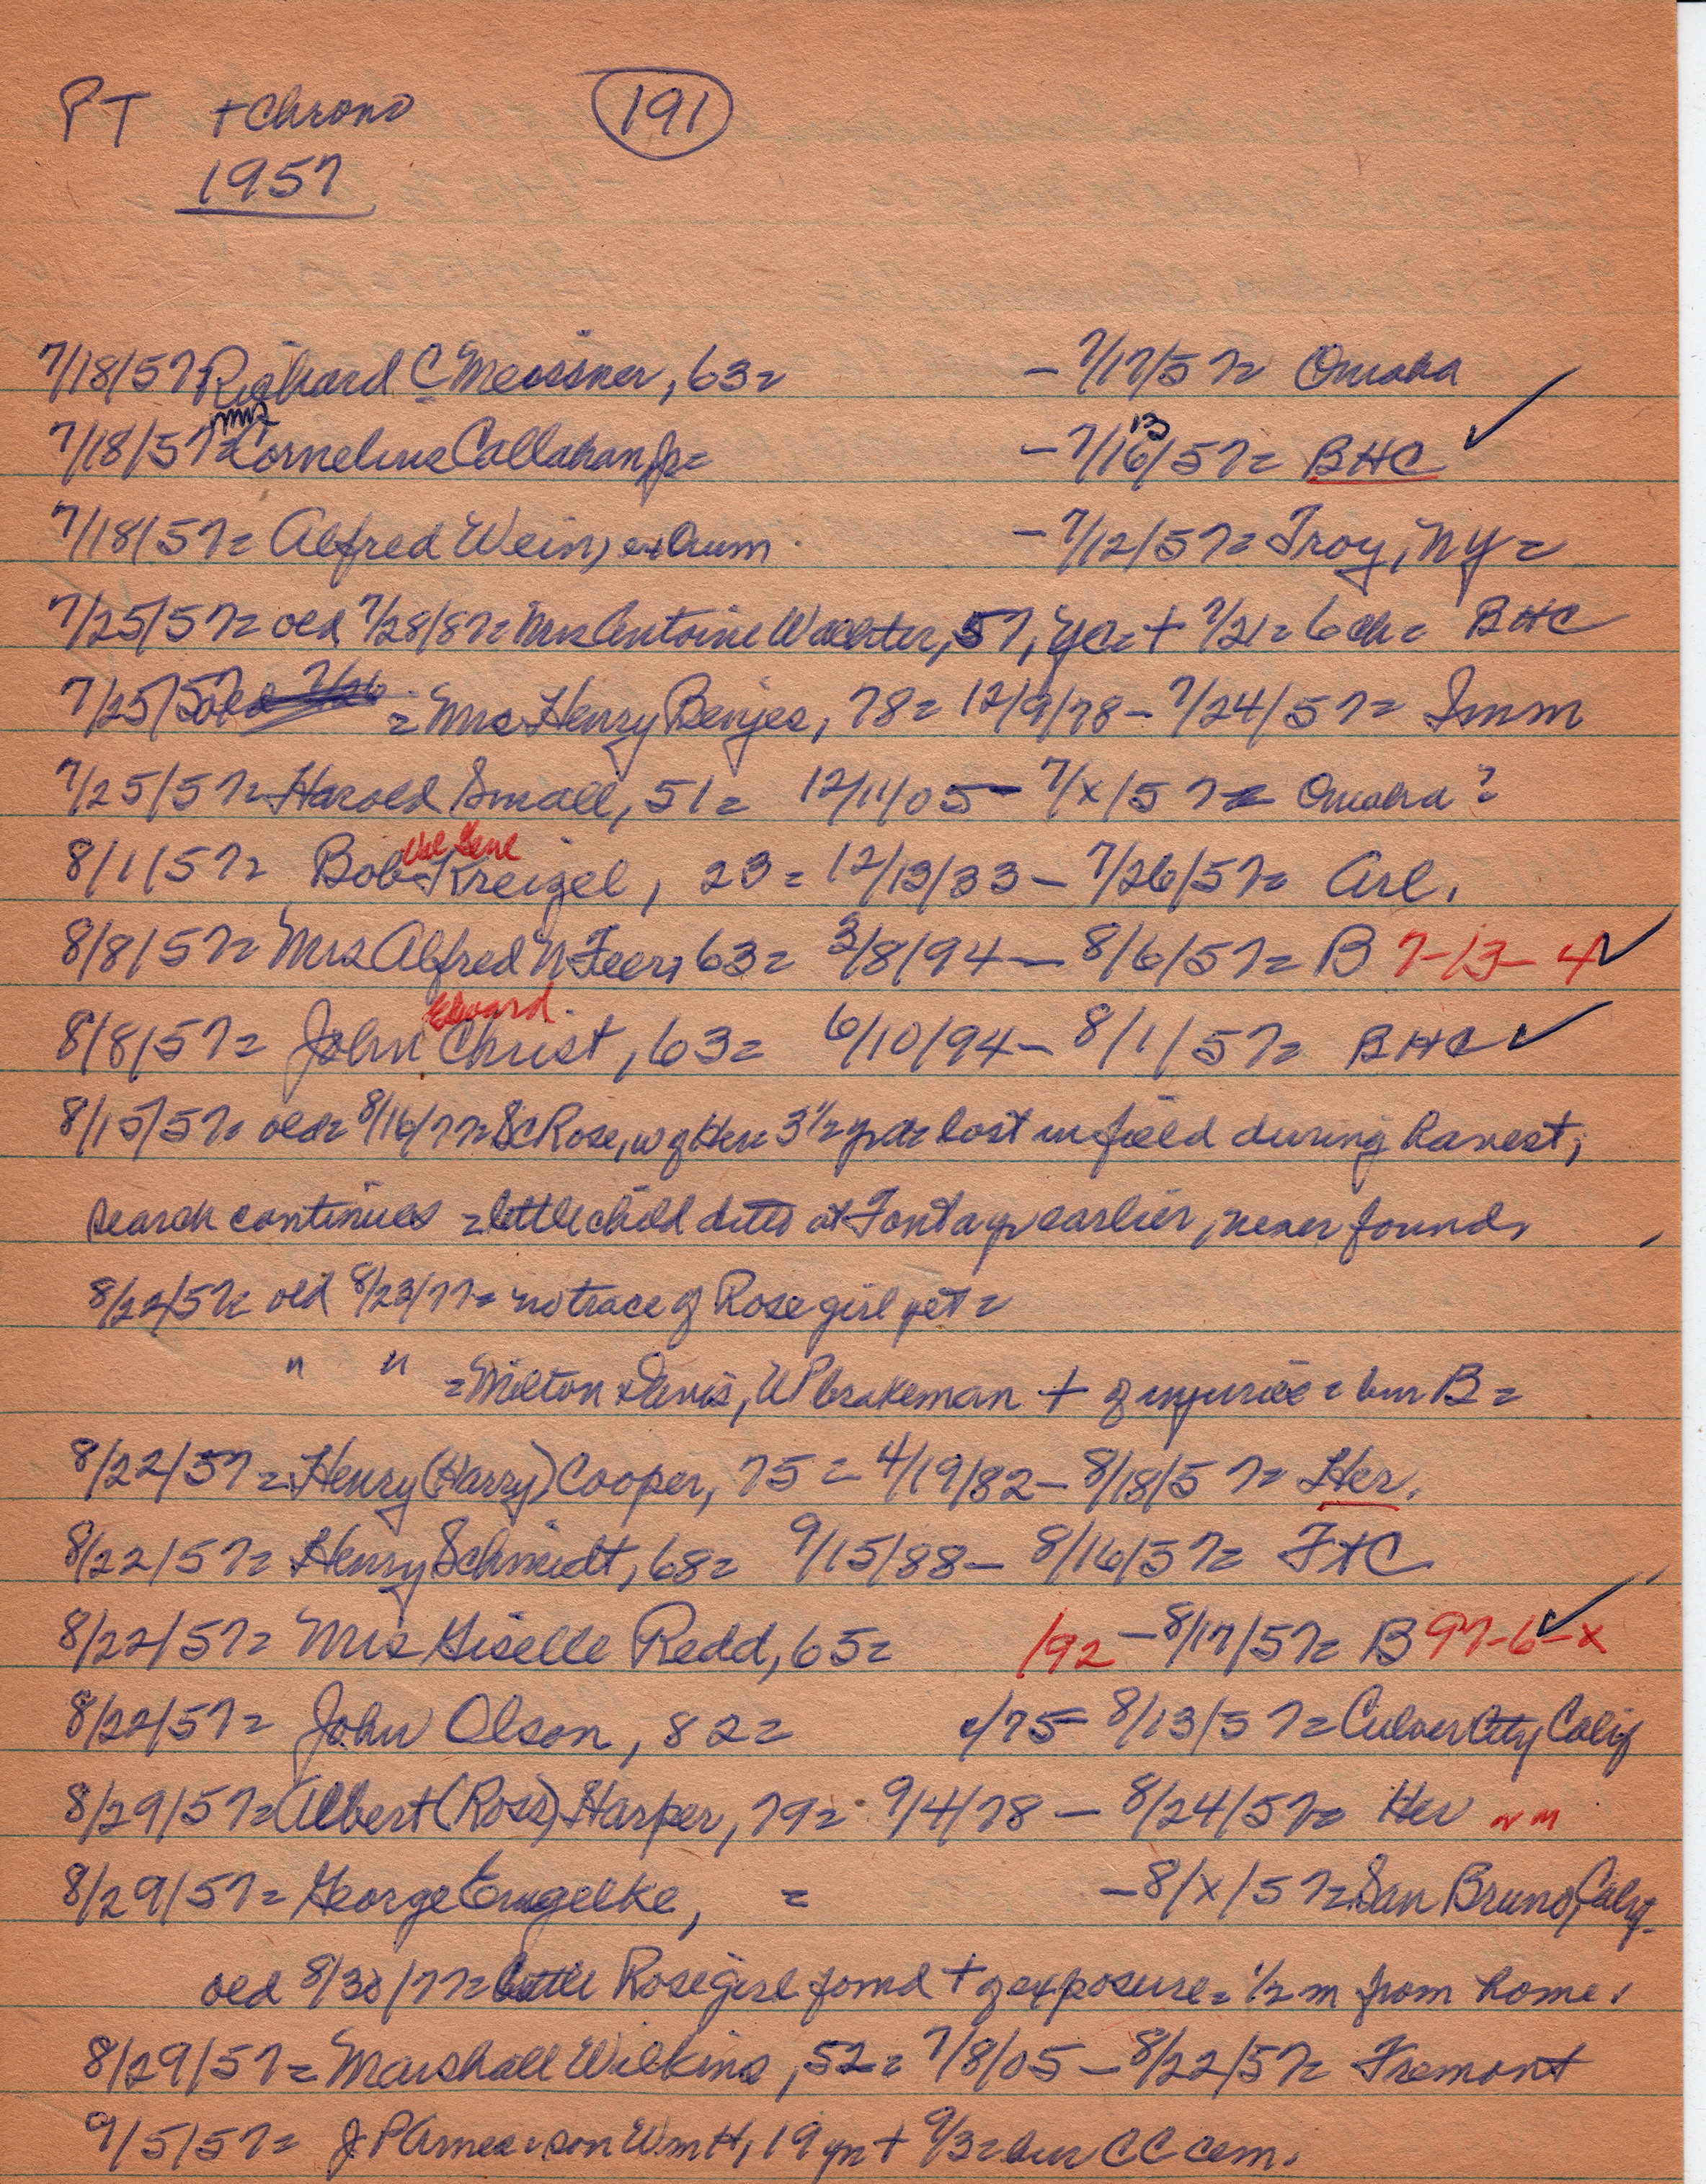 PT + Chrono 191
1957
7/18/57 Richard C Meissner, 63= - 7/17/57= Omaha
Mrs 13
7/18/57= Cornelius Callahan, Jr= - 7/16/57= BHC ✓
7/18/57= Alfred Wein, - 7/12/57= Troy, NY=
7/25/57= old 7/28/87= Mrs Antoine Walter, 57, + 7/21= 6 ch= BHC
7/25/57 old 7/26 = Mrs Henry Benjes, 78= 12/9/78 - 7/24/57=
7/25/57= Harold Small, 51= 12/11/05 - 7/x/57= Omaha?
Gene
8/1/57= Bob Kreizel, 23= 12/13/33 - 7/26/57= Arl.
8/8/57= Mrs Alfred N Feer, 63= 3/8/94 - 8/6/57= B 7-13-4 ✓
Edward
8/8/57= John Christ, 63= 6/10/94 - 8/1/57= BHC ✓
8/15/57= old= 8/16/77= SC Rose, w of Her= 3 1/2 yr d= lost in field during harvest,
search continues = little child ditto at Font a yr earlier, never found.
8/22/57= old 8/23/77= no trace of Rose girl yet=
" " = Milton Davis, UP brakeman + of injuries= bur B=
8/22/57= Henry (Harry) Cooper, 75= 4/19/82 - 8/18/57= Her.
8/22/57= Henry Schmidt, 68= 9/15/88 - 8/16/57= FtC
8/22/57= Mrs Giselle Redd, 65= /92 - 8/17/57= B 97-6-x ✓
8/22/57= John Olson, 82= c/75 - 8/13/57= Culver City Calif
8/29/57= Albert (Ross) Harper, 79= 9/4/78 - 8/24/57= Her nm
8/29/57= George Engelke, = - 8/x/57= San Bruno, Calif.
old 8/30/77= little Rose girl found + of exposure= 1/2 m from home.
8/29/57= Marshall Wilkins, 52= 7/8/05 - 8/22/57= Fremont
9/5/57= J P Ames= son Wm H, 19 yr + 9/3= bur CC cem.